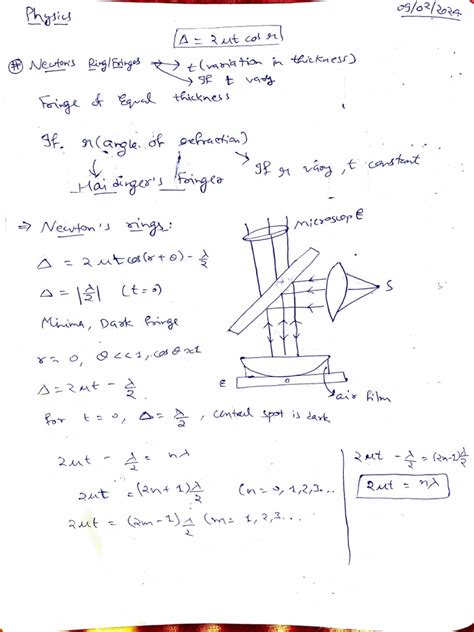 Physics
09/02/2024
Δ = 2μt cos r
# Newton's Ring/Fringes → t (variation in thickness)
→ If t vary
Fringe of Equal thickness
If r (angle of refraction)
→ If r vary, t constant
Haidinger's Fringer
⇒ Newton's rings:
Microscope
Δ = 2μt cos(r+θ) - λ/2
Δ = |λ/2| (t=0)
S
Minima, Dark fringe
r = 0, θ<<1, cosθ≈1
Δ = 2μt - λ/2
E
O
air film
for t = 0, Δ = λ/2, central spot is dark
2μt - λ/2 = nλ
2μt = (2n+1)λ/2 (n = 0, 1, 2, 3...
2μt = (2m-1)λ/2 (m = 1, 2, 3...
2μt - λ/2 = (2n-1)λ/2
2μt = nλ